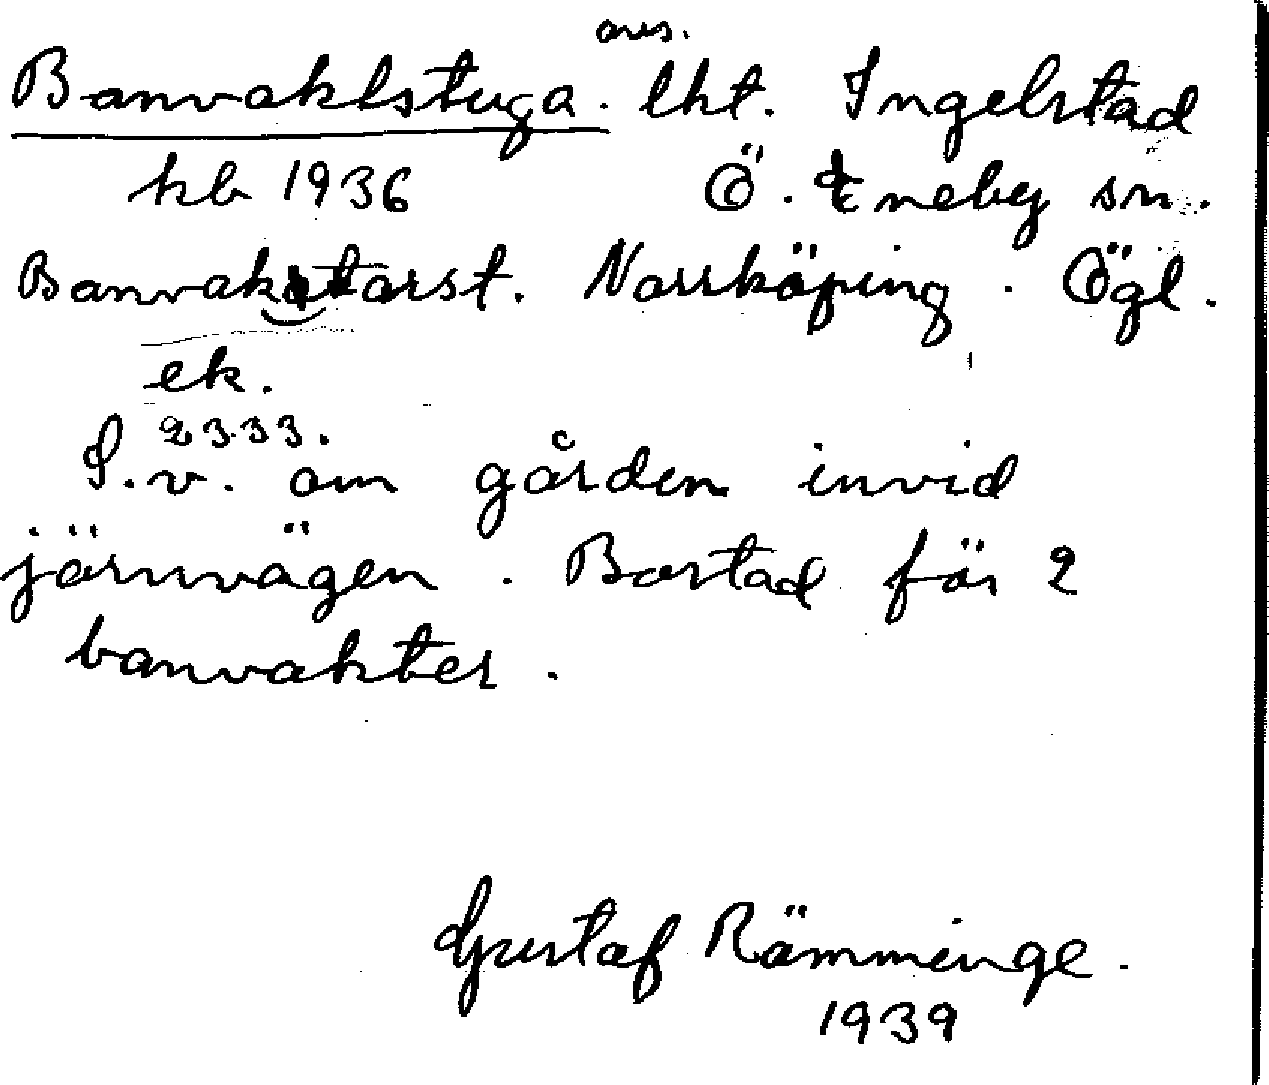 avs.
Banvaktstuga. lht. Ingelstad
kb 1936 Ö. Eneby sn.
Banvaktarst. Norrköping. Ögl.
ek.
2333.
S.v. om gården invid
järnvägen. Bostad för 2
banvakter.
Gustaf Rämminge.
1939